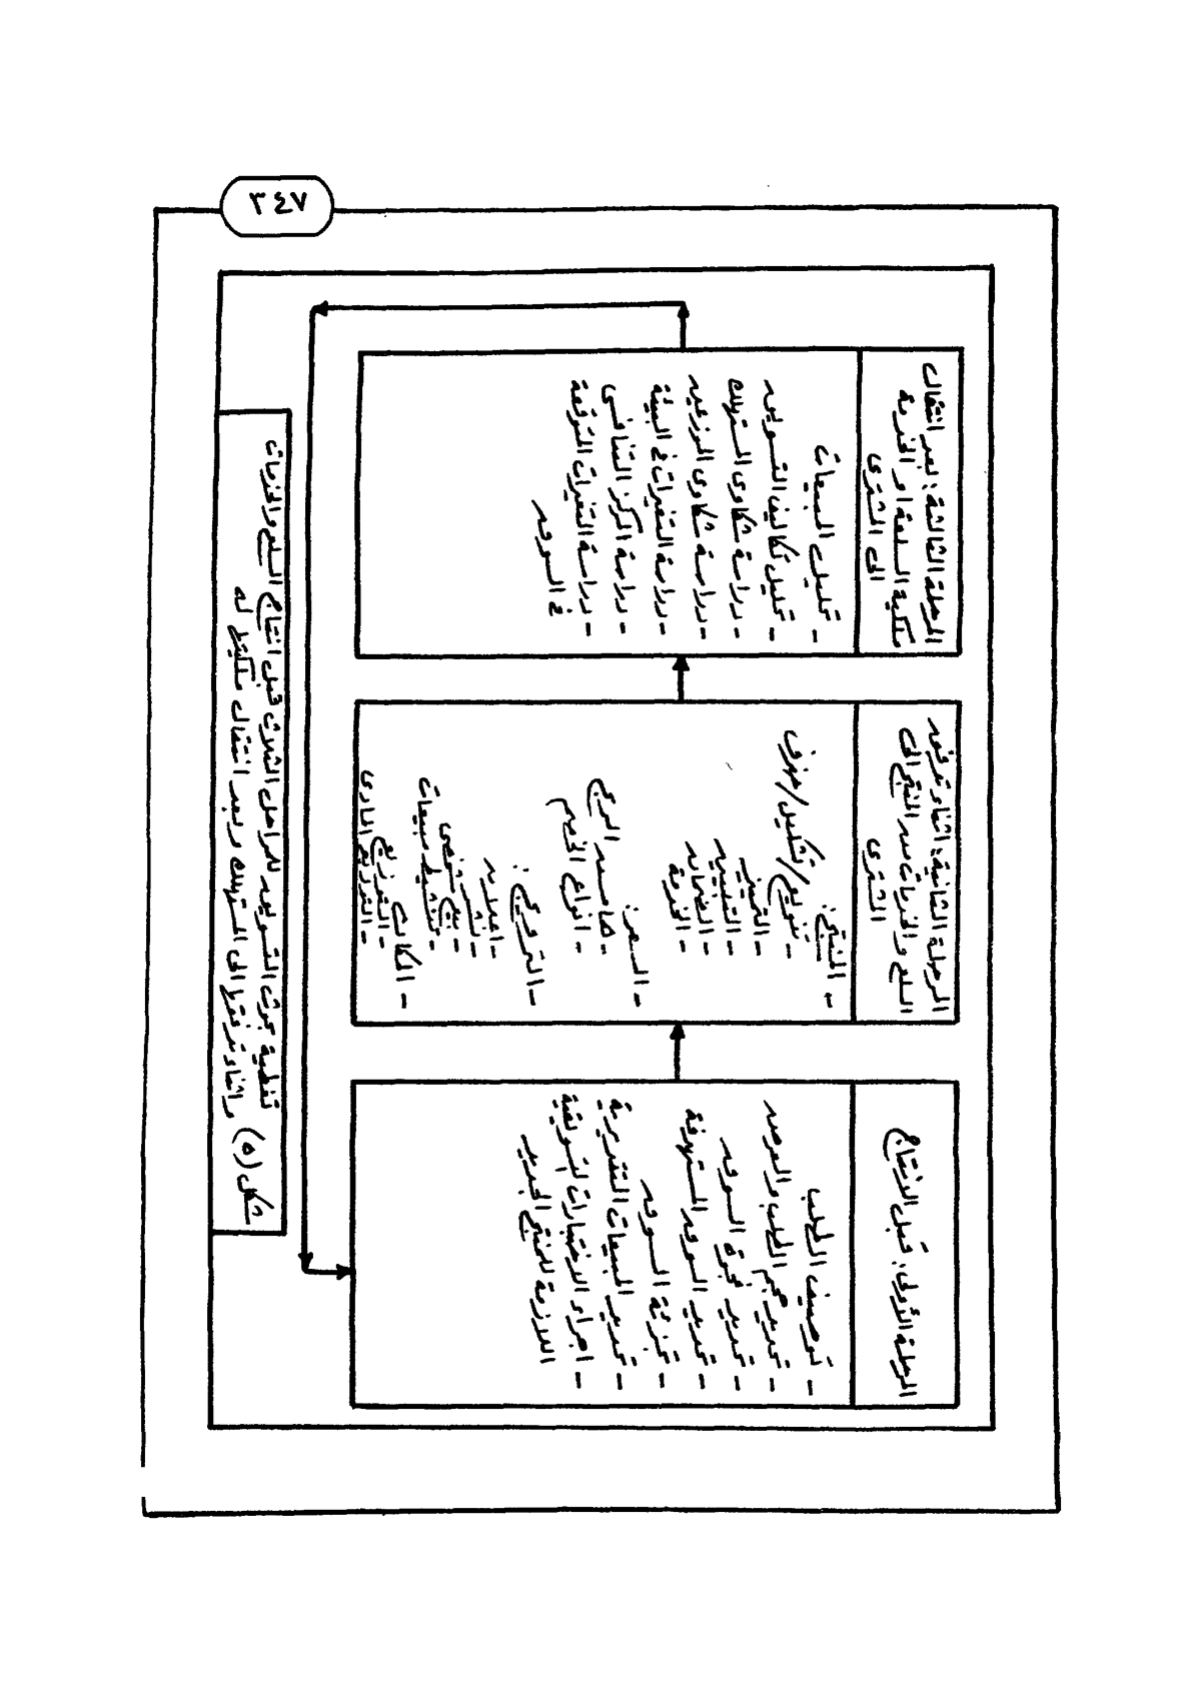 ٣٤٧
المرحلة الأولى: قبل الانتاج
- توصيف الطلب
- تحديد حجم الطلب والعرض
- تحديد فجوة السوق
- تحديد السوق المستهدفة
- تجزئة السوق
- تحديد المبيعات التقديرية
- اجراء الاختبارات التسويقية
اللازمة للمنتج الجديد
المرحلة الثانية: اثناء تدفق
السلع والخدمات من المنتج الى
المشترى
- المنتج:
- تنويع/تشكيل/
- التمييز
- التغليف
- الضمان
- الخدمة
- السعر:
- هامش الربح
- انواع الخصم
- الترويج:
- اعلان
- نشر
- بيع شخصى
- تنشيط مبيعات
- المكان
- التوزيع
- التوزيع المادى
المرحلة الثالثة: بعد انتقال
ملكية السلعة او الخدمة
الى المشترى
- تحليل المبيعات
- تحليل تكاليف التسويق
- دراسة شكاوى المستهلك
- دراسة شكاوى الموزعين
- دراسة التغيرات فى البيئة
- دراسة المركز التنافسى
- دراسة التغيرات المتوقعة
فى السوق
شكل (٥) تغطية بحوث التسويق للمراحل الثلاث قبل انتاج السلع والخدمات
واثناء تدفقها الى المستهلك وبعد انتقال ملكيتها له